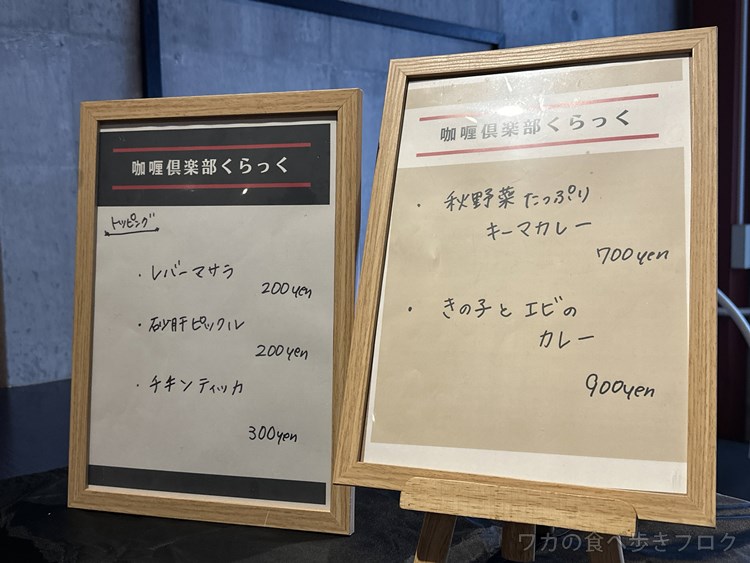 咖喱倶楽部くらっく
トッピング
・レバーマサラ
200yen
・砂肝ピックル
200yen
・チキンティッカ
300yen
咖喱倶楽部くらっく
・秋野菜たっぷり
キーマカレー
700yen
・きの子とエビの
カレー
900yen
ワカの食べ歩きブログ